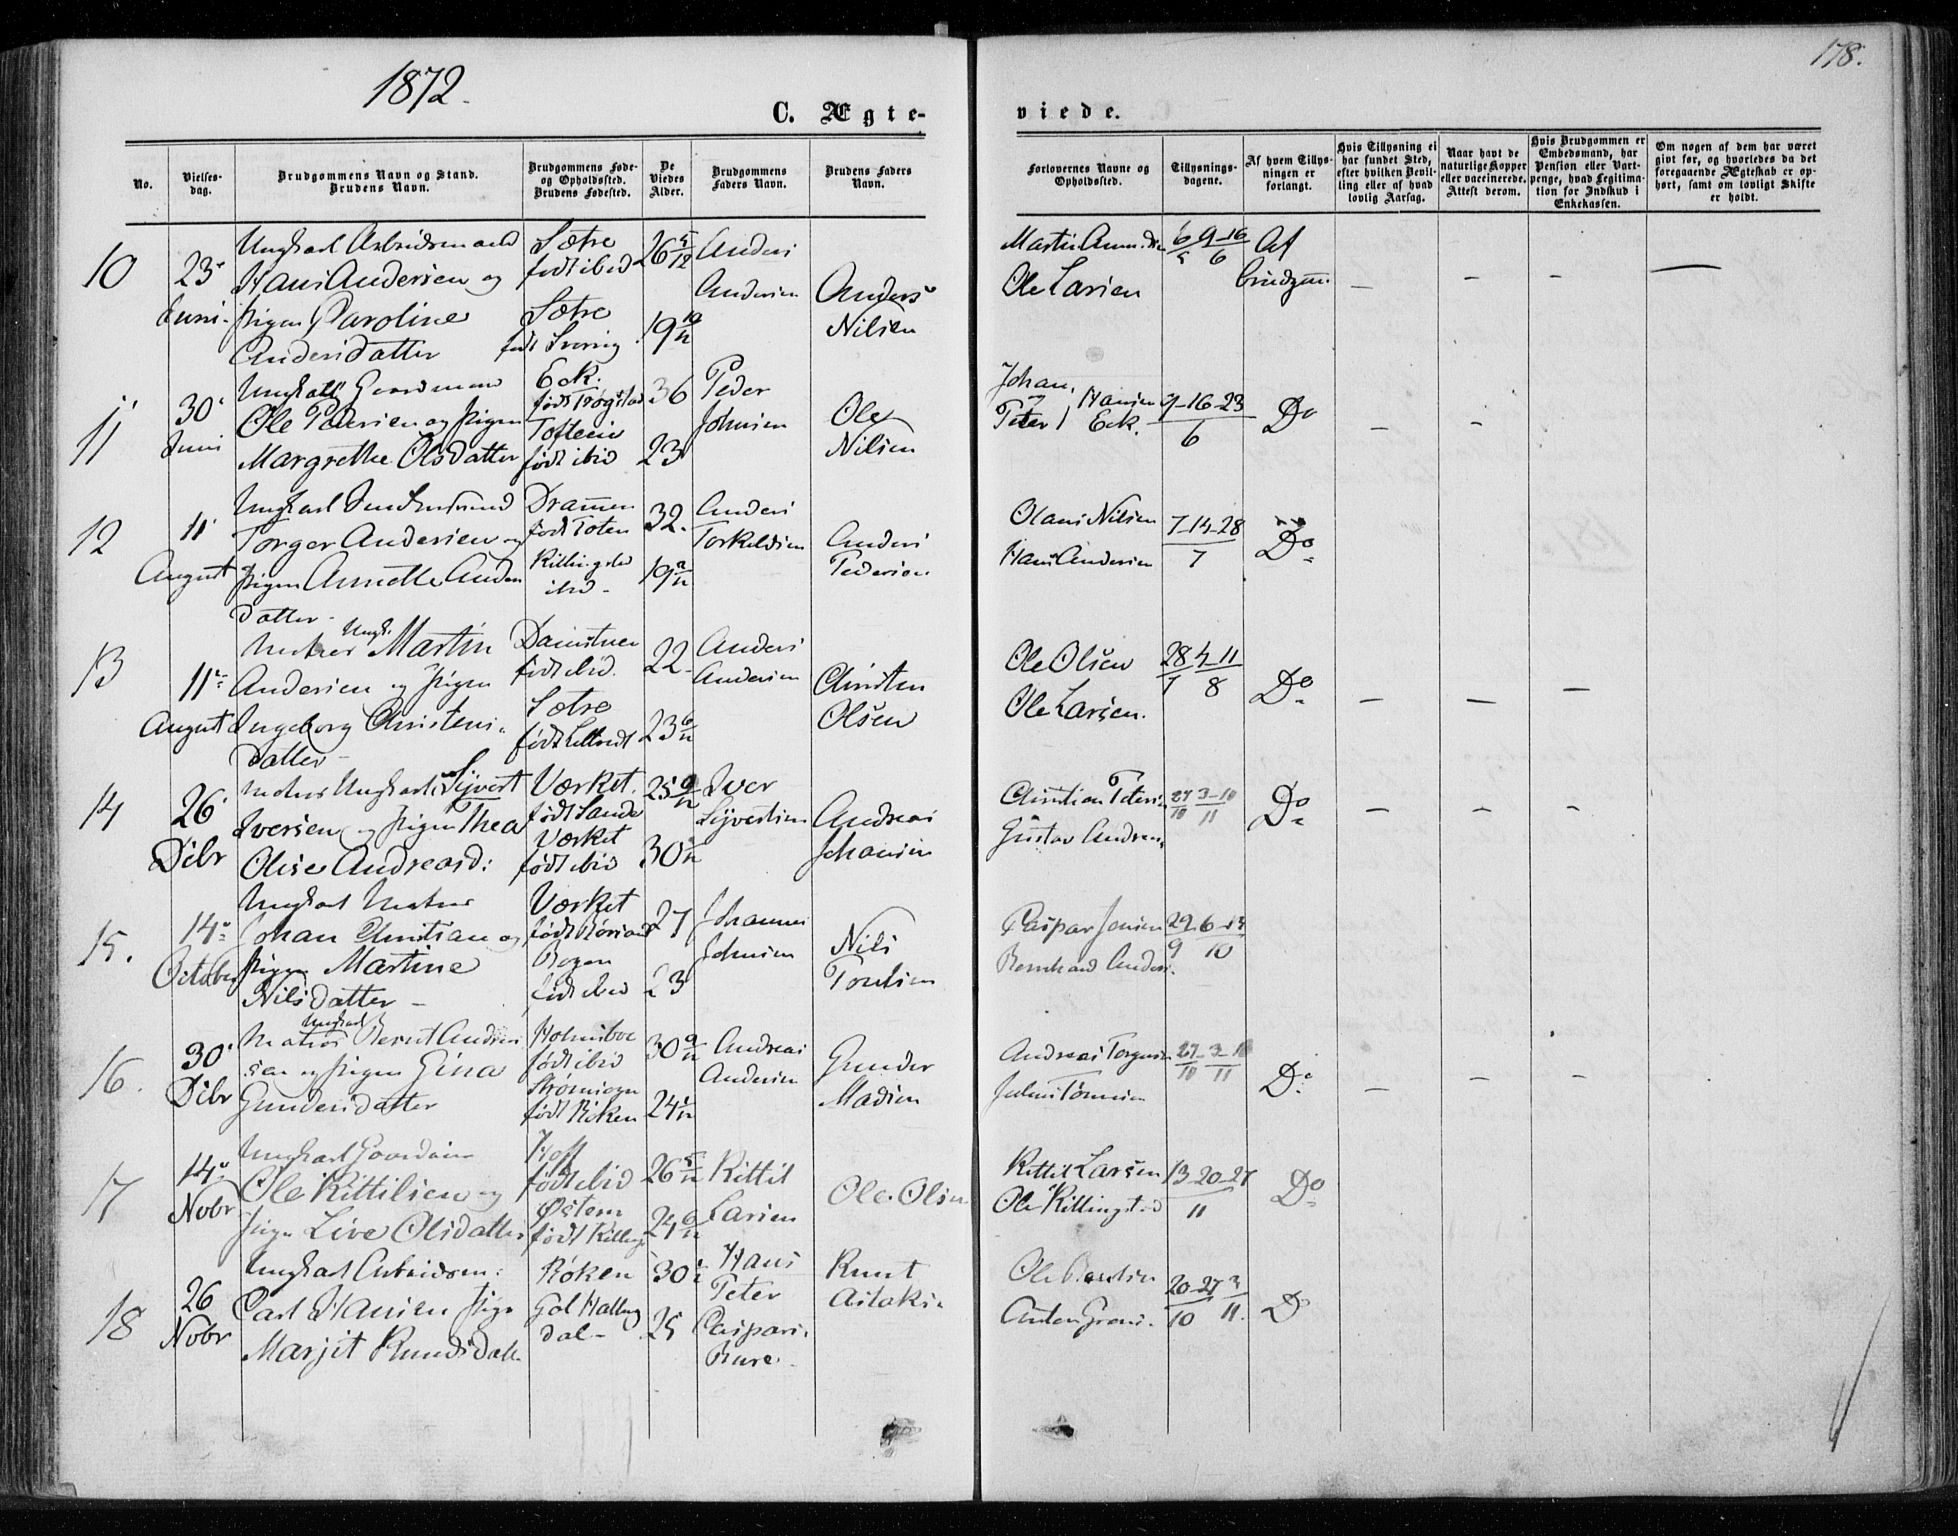 1872.
178.
C. Ægte-
viede.
No.
Vielses-
dag.
Brudgommens Navn og Stand.
Brudens Navn.
Brudgommens Føde-
og Opholdssted.
Brudens Fødested.
De
Viedes
Alder.
Brudgommens
Faders Navn.
Brudens Faders
Navn.
Forlovernes Navne og
Opholdssted.
Tillysnings-
dagene.
Af hvem Tillys-
ningen er
forlangt.
Hvis Tillysning ei
har fundet Sted,
efter hvilken Bevil-
ling eller af hvad
lovlig Aarsag.
Naar havt de
naturlige Kopper
eller vaccinerede.
Attest derom.
Hvis Brudgommen er
Embedsmand, har
Pension eller Vart-
penge, hvad Legitima-
tion for Indskud i
Enkekassen.
Om nogen af dem har været
givt før, og hvorledes da det
foregaaende Ægteskab er op-
hørt, samt om lovligt Skifte
er holdt.
10
23
Juni
Ungkarl
Hans Andersen og
Pigen Caroline
Andersdatter
Sætre
født ibid
Sætre
født
26 5/12
19 10/12
Anders
Andersen
Anders
Nilsen
Martin
Ole Larsen
6/5 9-16/6
Af
Brudgom.
11
30
Juni
Ungkarl Gaardmand
Ole Pedersen og Pigen
Margrethe Olsdatter
Eck.
født Trøgstad
Tofteeie
født ibid
36
23
Peder
Johnsen
Ole
Nilsen
Johan
Peter Hansen
Eck.
9-16-23
6
Do
12
11
August
Ungkarl
Torger Andersen og
Pigen Annette Anders
datter
Drammen
født Toten
Killingsted
ibid
32.
19
Anders
Torkeldsen
Anders
Pedersen
Olaus Nilsen
Hans Andersen
7-14-28
7
Do
13
11
August
Ungk. Martin
Andersen og Pigen
Ingeborg Christens
datter
født ibid.
Sætre
født
22
23 6/12
Anders
Andersen
Christen
Olsen
Ole Olsen
Ole Larsen.
28/7 4-11/8
Do
14
26
Dcbr
Ungkarl Syvert
Iversen og Pigen Thea
Olise Andreasd:
Værket.
født Sande
Værket
født ibid
25 9/12
30
Iver
Syvertsen
Andreas
Johansen
Christian Petersen
Gustav Andreas
27/10 3-10/11
Do
15.
14
October
Ungkarl
Johan Christian og
Pigen Martine
Nilsdatter
Værket
født
Bogen
født ibid
27
23
Johannes
Johnsen
Nils
Caspar Jensen
Bernhard Anders.
29/9 6-13/10
16.
30
Dcbr
Ungkarl
Bernt Andreas
sen og Pigen Gina
Gundersdatter
Holmsboe
født ibid
født Røken
30 9/12
24
Andreas
Andersen
Gunder
Madsen
Andreas Torgersen
27/10 3-10/11
Do
17
14
Nobr
Ungkarl
Ole Kittilsen og
Pigen Live Olsdatter
Hoff
født ibid
Østern
født Killings
26 5/12
24 6/12
Kittil
Larsen
Ole Olsen
Kittil Larsen
Ole Killingsted
13-20-27
11
Do
18
26
Nobr
Ungkarl
Carl Hansen Pige
Marjit Knudsdatt
Røken
Gol Halling
dal
30
25
Hans
Peter
Caspars.
Bure.
Knut
Aslaks.
Ole
Anton
20-27/10 3/11.
D